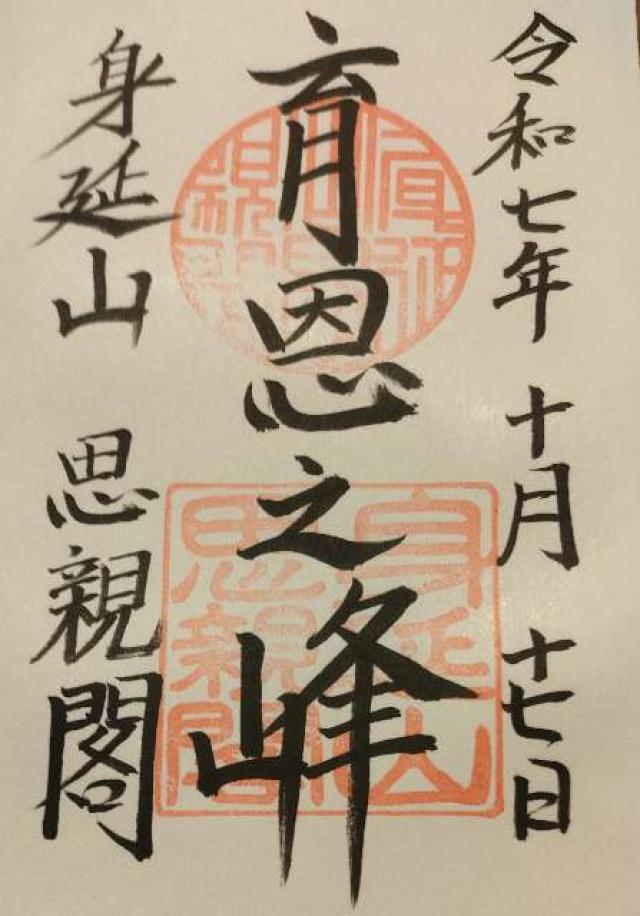 令和七年 十月 十七日
育恩之峰
身延山 思親閣
身延山
思親閣